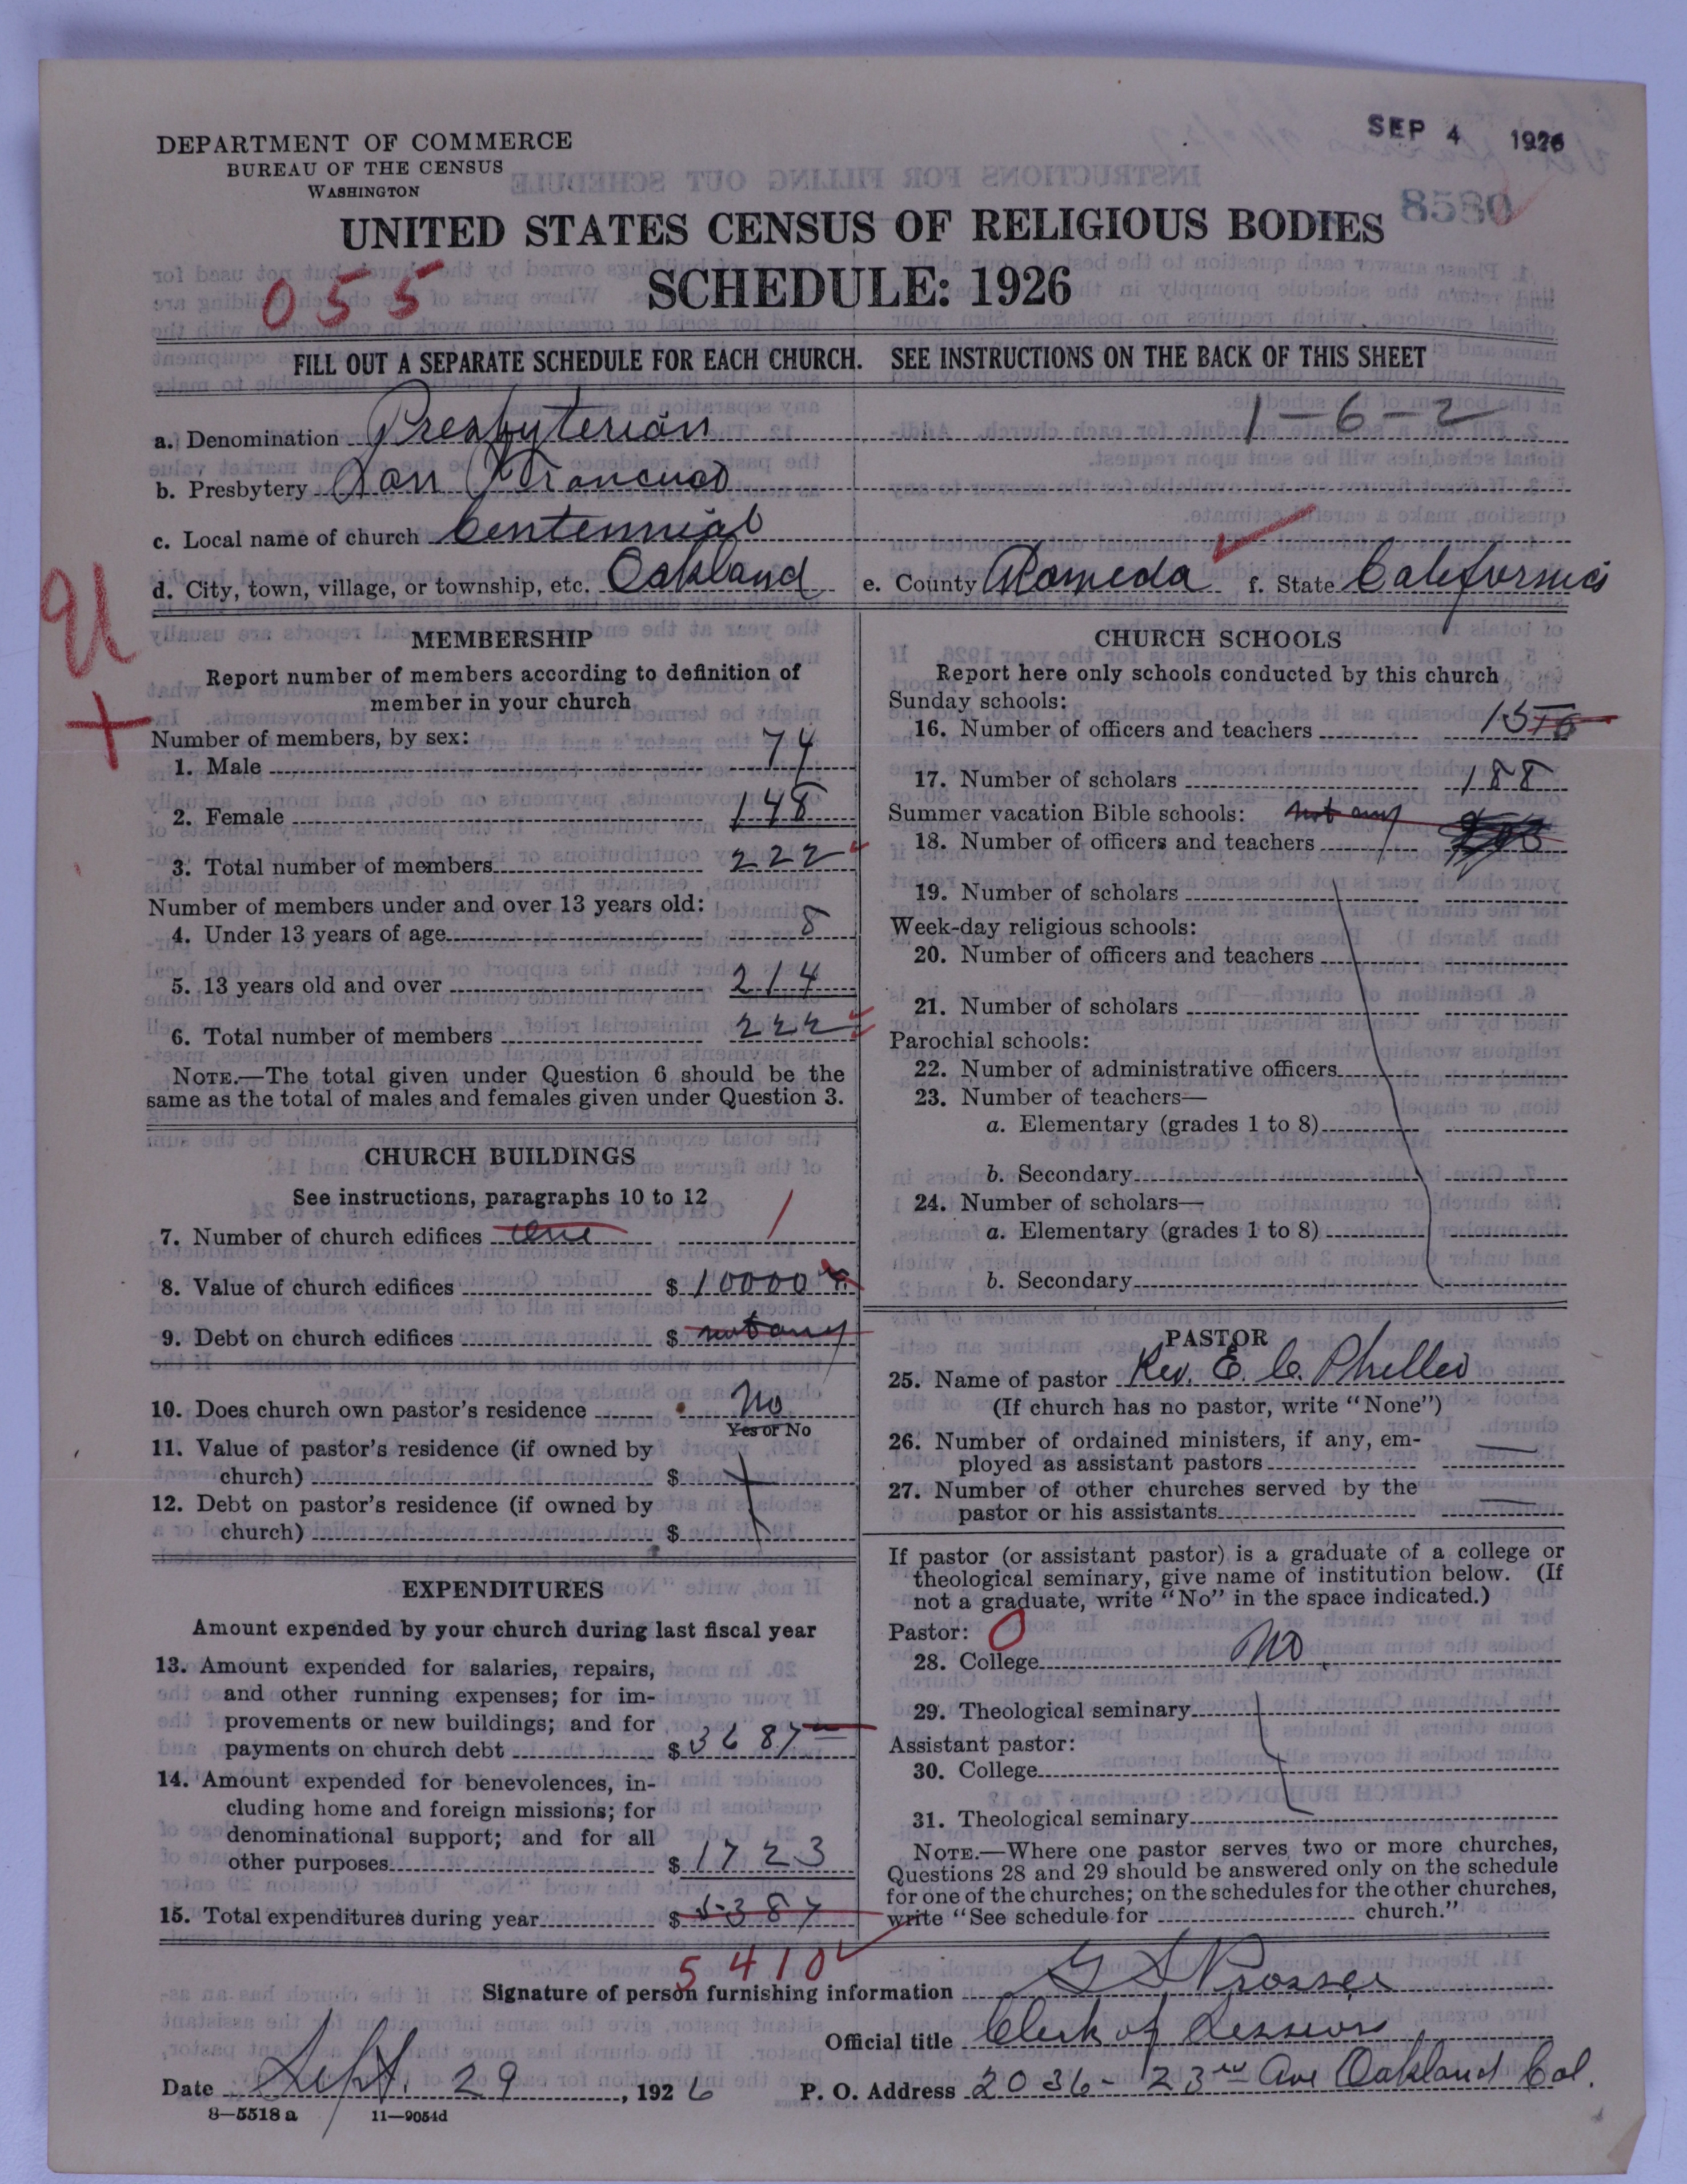 SEP 4 1926
DEPARTMENT OF COMMERCE
BUREAU OF THE CENSUS
WASHINGTON
8580
UNITED STATES CENSUS OF RELIGIOUS BODIES
055
SCHEDULE: 1926
FILL OUT A SEPARATE SCHEDULE FOR EACH CHURCH. SEE INSTRUCTIONS ON THE BACK OF THIS SHEET
a. Denomination Presbyterian 1-6-2
b. Presbytery San Francisco
c. Local name of church Centennial
d. City, town, village, or township, etc. Oakland e. County Alameda f. State California
MEMBERSHIP
Report number of members according to definition of
member in your church
Number of members, by sex:
1. Male 74
2. Female 148
3. Total number of members 222
Number of members under and over 13 years old:
4. Under 13 years of age 8
5. 13 years old and over 214
6. Total number of members 222
NOTE.—The total given under Question 6 should be the
same as the total of males and females given under Question 3.
CHURCH BUILDINGS
See instructions, paragraphs 10 to 12
7. Number of church edifices one 1
8. Value of church edifices $ 10000
9. Debt on church edifices $ not any
10. Does church own pastor's residence No
Yes or No
11. Value of pastor's residence (if owned by
church) $
12. Debt on pastor's residence (if owned by
church) $
EXPENDITURES
Amount expended by your church during last fiscal year
13. Amount expended for salaries, repairs,
and other running expenses; for im-
provements or new buildings; and for
payments on church debt $ 3687
14. Amount expended for benevolences, in-
cluding home and foreign missions; for
denominational support; and for all
other purposes $ 1723
15. Total expenditures during year $ 5387
5410
CHURCH SCHOOLS
Report here only schools conducted by this church
Sunday schools:
16. Number of officers and teachers 15
17. Number of scholars 188
Summer vacation Bible schools: not any
18. Number of officers and teachers
19. Number of scholars
Week-day religious schools:
20. Number of officers and teachers
21. Number of scholars
Parochial schools:
22. Number of administrative officers
23. Number of teachers—
a. Elementary (grades 1 to 8)
b. Secondary
24. Number of scholars—
a. Elementary (grades 1 to 8)
b. Secondary
PASTOR
25. Name of pastor Rev. E. C. Philleo
(If church has no pastor, write "None")
26. Number of ordained ministers, if any, em-
ployed as assistant pastors —
27. Number of other churches served by the
pastor or his assistants —
If pastor (or assistant pastor) is a graduate of a college or
theological seminary, give name of institution below. (If
not a graduate, write "No" in the space indicated.)
Pastor: 0
28. College No
29. Theological seminary
Assistant pastor:
30. College
31. Theological seminary
NOTE.—Where one pastor serves two or more churches,
Questions 28 and 29 should be answered only on the schedule
for one of the churches; on the schedules for the other churches,
write "See schedule for church."
Signature of person furnishing information G S Prosser
Official title Clerk of Session
Date Sept. 29, 1926 P. O. Address 2036- 23rd Ave Oakland Cal.
8—5518 a 11—9054d